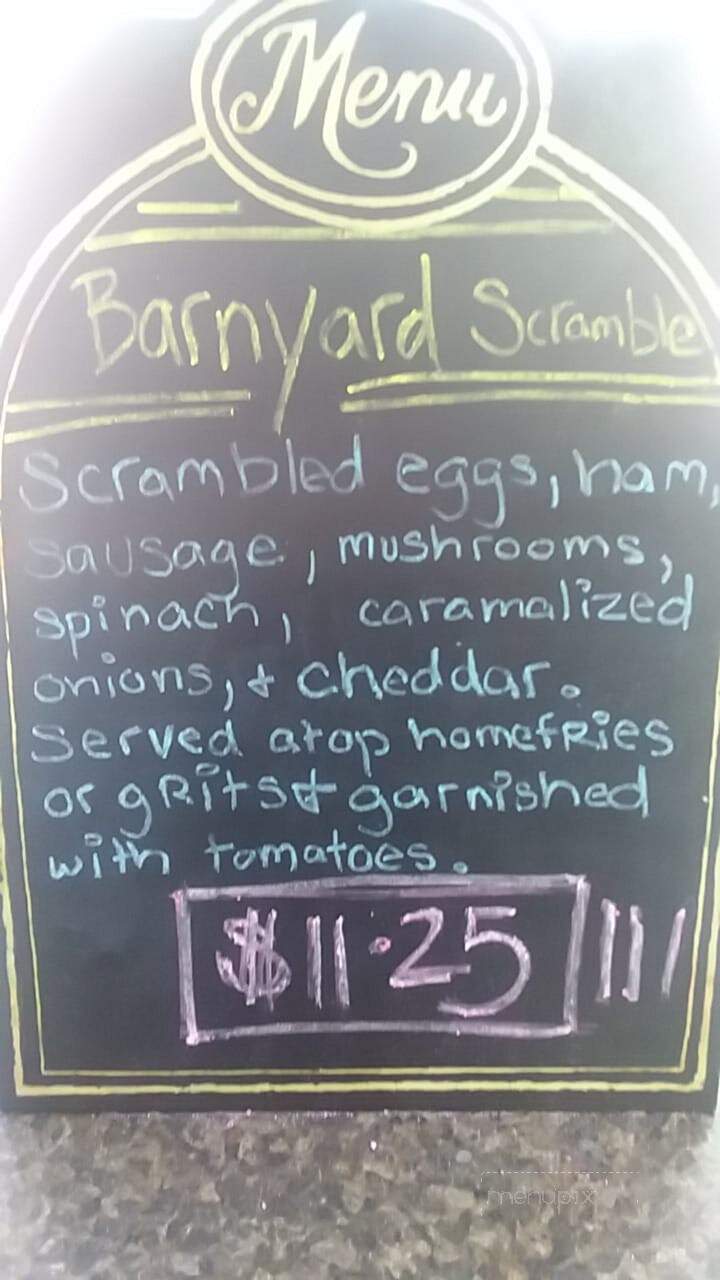 Menu
Barnyard Scramble
Scrambled eggs, ham,
sausage, mushrooms,
spinach, caramalized
onions, & cheddar.
Served atop homefries
or grits & garnished
with tomatoes.
$11.25
menupix